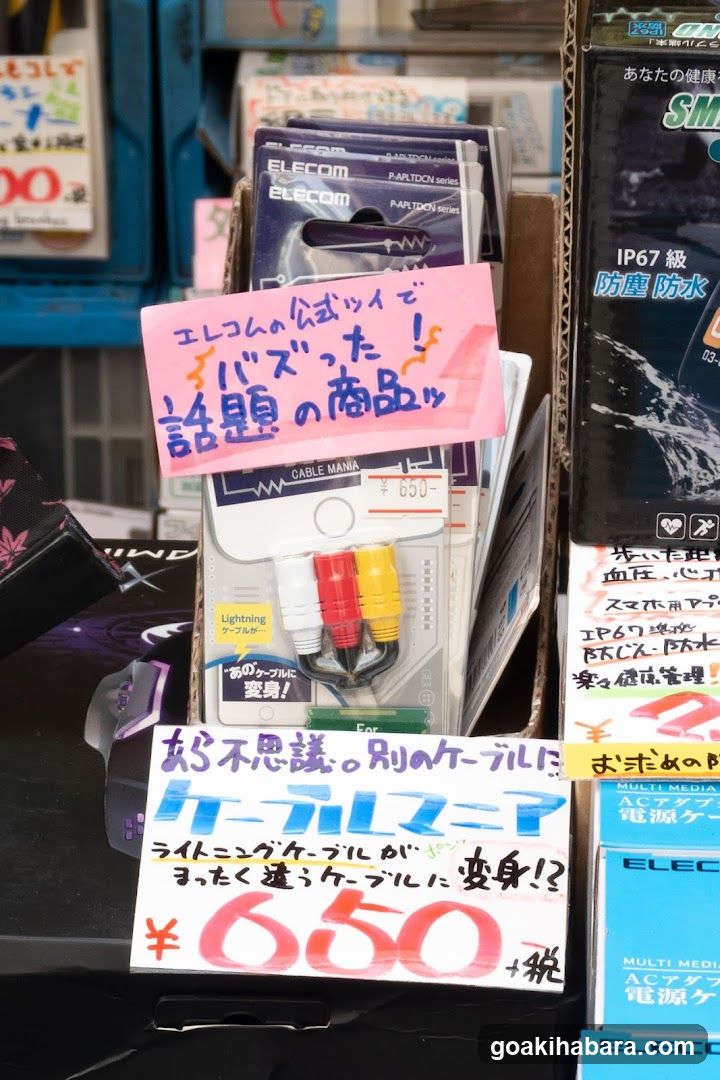 00
IP67 防水
あなたの健康
SM
IP67 級
防塵 防水
ELECOM
P-APLTDCN series
ELECOM
P-APLTDCN series
ELECOM
P-APLTDCN series
エレコムの公式ツイで
バズった!
話題の商品ッ
CABLE MANIA
¥ 650-
Lightning
ケーブルが…
"あの"ケーブルに
変身!
For
あら不思議。別のケーブルに
ケーブルマニア
ライトニングケーブルが
まったく違うケーブルに 変身!?
¥650
+税
歩いた距
血圧、心
スマホ用アプ
IP67
防じん・防水
楽々健康管理!
¥
お求めの
MULTI MEDIA
ACアダプタ
電源ケー
ELEC
MULTI MEDI
ACアダプ
電源ケ
goakihabara.com